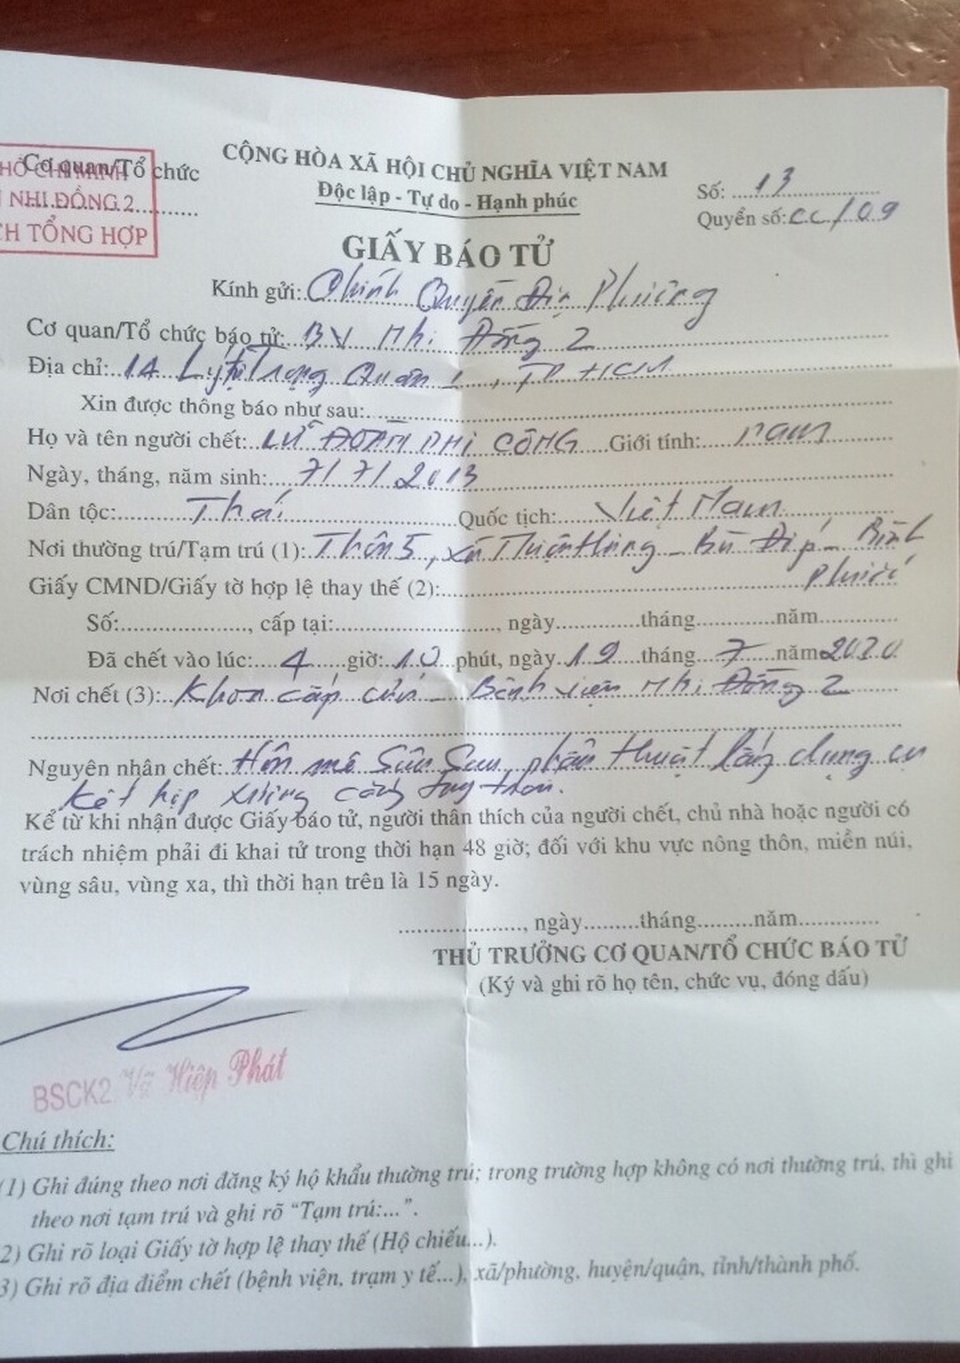 HỒ CHÍ MINH
Cơ quan/Tổ chức
NHI ĐỒNG 2
CH TỔNG HỢP
CỘNG HÒA XÃ HỘI CHỦ NGHĨA VIỆT NAM
Độc lập - Tự do - Hạnh phúc
Số: 13
Quyển số: CC/09
GIẤY BÁO TỬ
Kính gửi: Chính Quyền Địa Phương
Cơ quan/Tổ chức báo tử: BV Nhi Đồng 2
Địa chỉ: 14 Lý Tự Trọng Quận 1, TP HCM
Xin được thông báo như sau:
Họ và tên người chết: LỮ ĐOÀN PHI CÔNG Giới tính: nam
Ngày, tháng, năm sinh: 7/7/2013
Dân tộc: Thái Quốc tịch: Việt Nam
Nơi thường trú/Tạm trú (1): Thôn 5, xã Thiện Hưng - Bù Đốp - Bình
Phước
Giấy CMND/Giấy tờ hợp lệ thay thế (2):
Số:, cấp tại:, ngày tháng năm
Đã chết vào lúc: 4 giờ: 10 phút, ngày 19 tháng 7 năm 2020
Nơi chết (3): Khoa cấp cứu - Bệnh viện Nhi Đồng 2
Nguyên nhân chết: Hôn mê Sâu Sau phẫu thuật lấy dụng cụ
kết hợp xương cẳng tay
Kể từ khi nhận được Giấy báo tử, người thân thích của người chết, chủ nhà hoặc người có
trách nhiệm phải đi khai tử trong thời hạn 48 giờ; đối với khu vực nông thôn, miền núi,
vùng sâu, vùng xa, thì thời hạn trên là 15 ngày.
, ngày tháng năm
THỦ TRƯỞNG CƠ QUAN/TỔ CHỨC BÁO TỬ
(Ký và ghi rõ họ tên, chức vụ, đóng dấu)
BSCK2. Vũ Hiệp Phát
Chú thích:
(1) Ghi đúng theo nơi đăng ký hộ khẩu thường trú; trong trường hợp không có nơi thường trú, thì ghi
theo nơi tạm trú và ghi rõ “Tạm trú:...”.
2) Ghi rõ loại Giấy tờ hợp lệ thay thế (Hộ chiếu...).
3) Ghi rõ địa điểm chết (bệnh viện, trạm y tế...), xã/phường, huyện/quận, tỉnh/thành phố.